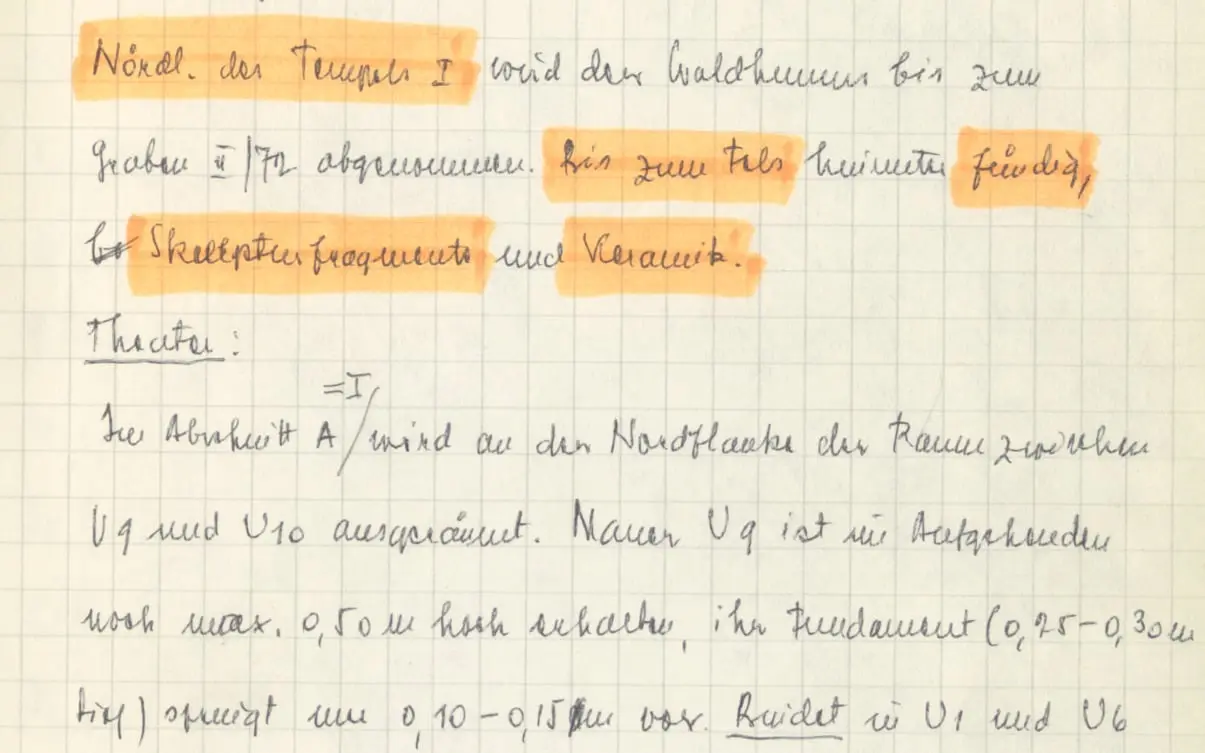 Nördl. des Tempels I wird der Waldhumus bis zum
Graben II/72 abgenommen. Bis zum Fels hinunter fündig,
Skulpturfragmente und Keramik.
Theater:
=I
Im Abschnitt A / wird an der Nordflanke der Raum zwischen
U9 und U10 ausgeräumt. Mauer U9 ist im Aufgehenden
noch max. 0,50 m hoch erhalten, ihr Fundament (0,25-0,30 m
tief) springt um 0,10-0,15 m vor. Bindet in U1 und U6